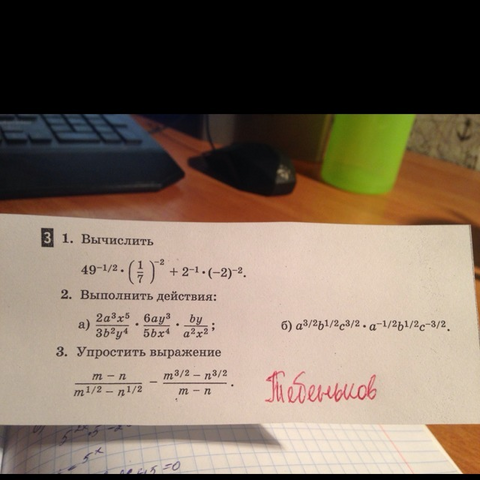 3 1. Вычислить
49^{-1/2} • (1/7)^{-2} + 2^{-1} • (-2)^{-2}.
2. Выполнить действия:
а) 2a^3x^5/3b^2y^4 • 6ay^3/5bx^4 • by/a^2x^2; б) a^{3/2}b^{1/2}c^{3/2} • a^{-1/2}b^{1/2}c^{-3/2}.
3. Упростить выражение
m – n/m^{1/2} – n^{1/2} – m^{3/2} – n^{3/2}/m – n.
Тебеньков